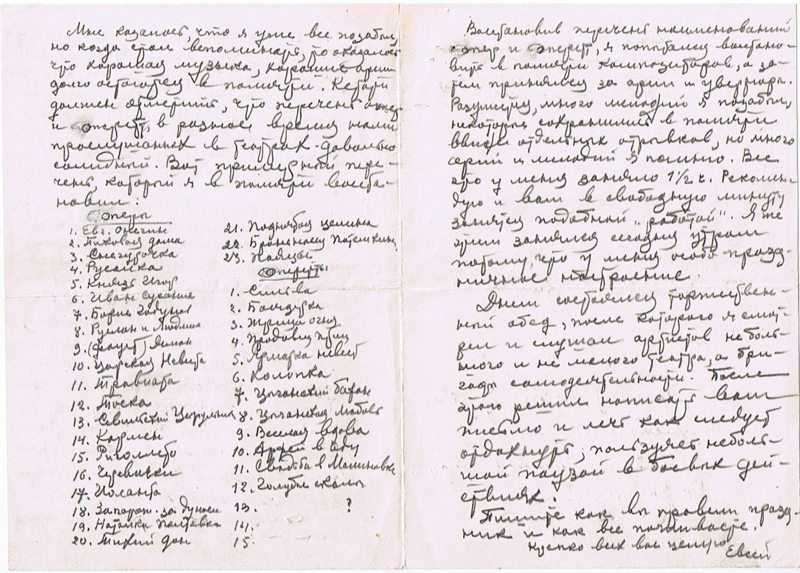 Мне казалось, что я уже все позабыл,
но когда стал вспоминать, то оказалось
что хорошая музыка, хорошие арии
долго остаются в памяти. Кстати
должен отметить, что перечень опер
и оперетт, в разное время нами
прослушанных в театрах - довольно
солидный. Вот примерный пере-
чень, который я в памяти восста-
новил:
Оперы
1. Евг. Онегин
2. Пиковая дама
3. Снегурочка
4. Русалка
5. Князь Игорь
6. Иван Сусанин
7. Борис Годунов
8. Руслан и Людмила
9. Фауст
10. Царская Невеста
11. Травиата
12. Тоска
13. Севильский Цирульник
14. Кармен
15. Риголетто
16. Черевички
17. Иоланта
18. Запорож. за Дунаем
19. Наталка Полтавка
20. Тихий дон
21. Поднятая целина
22. Броненосец Потемкин
23.
Оперетты
1. Сильва
2. Баядерка
3. Жрица огня
4. Продавец птиц
5. Ярмарка невест
6. Коломбина
7. Цыганский барон
8. Цыганская Любовь
9. Веселая вдова
10. Орфей в аду
11. Свадьба в Малиновке
12. Голубые скалы
13. ?
14.
15.
Восстановив перечень наименований
опер и оперетт, я попытался восстано-
вить в памяти композиторов, а за-
тем принялся за арии и увертюры.
Разумеется, много мелодий я позабыл,
некоторые сохранились в памяти
ввиде отдельных отрывков, но много
арий и мелодий я помню. Все
это у меня заняло 1 1/2 ч. Рекомен-
дую и вам в свободную минуту
заняться подобной „работой". Я же
этим занялся сегодня утром
потому что у меня особо празд-
ничное настроение.
Днем состоялся торжествен-
ный обед, после которого я смот-
рел и слушал артистов не боль-
шого и не малого театра, а бри-
гады самодеятельности. После
этого решил написать вам
письмо и лечь как следует
отдохнуть, пользуясь неболь-
шой паузой в боевых дей-
ствиях.
Пишите как вы провели празд-
ник и как все поживаете.
Крепко всех вас целую
Евсей